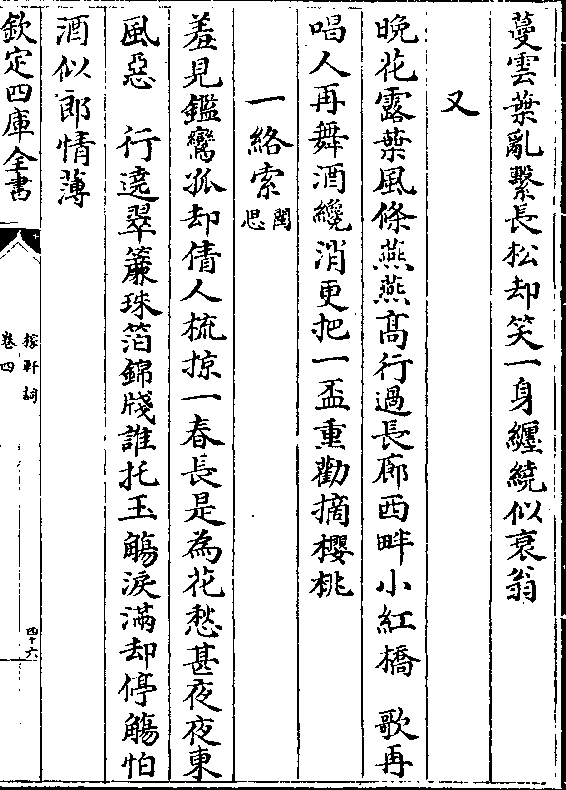 蔓雲葉亂繫長松却笑一身纏繞似衰翁
又
晚花露葉風條燕燕髙行過長廊西畔小紅橋　歌再
唱人再舞酒纔消更把一盃重勸摘櫻桃
一絡索閨思
羞見鑑鸞孤却倩人梳掠一春長是為花愁甚夜夜東
風惡　行遶翠簾珠箔錦牋誰托玉觴淚滿却停觴怕
酒似郎情薄
欽定四庫全書
稼軒詞
卷四
四十六